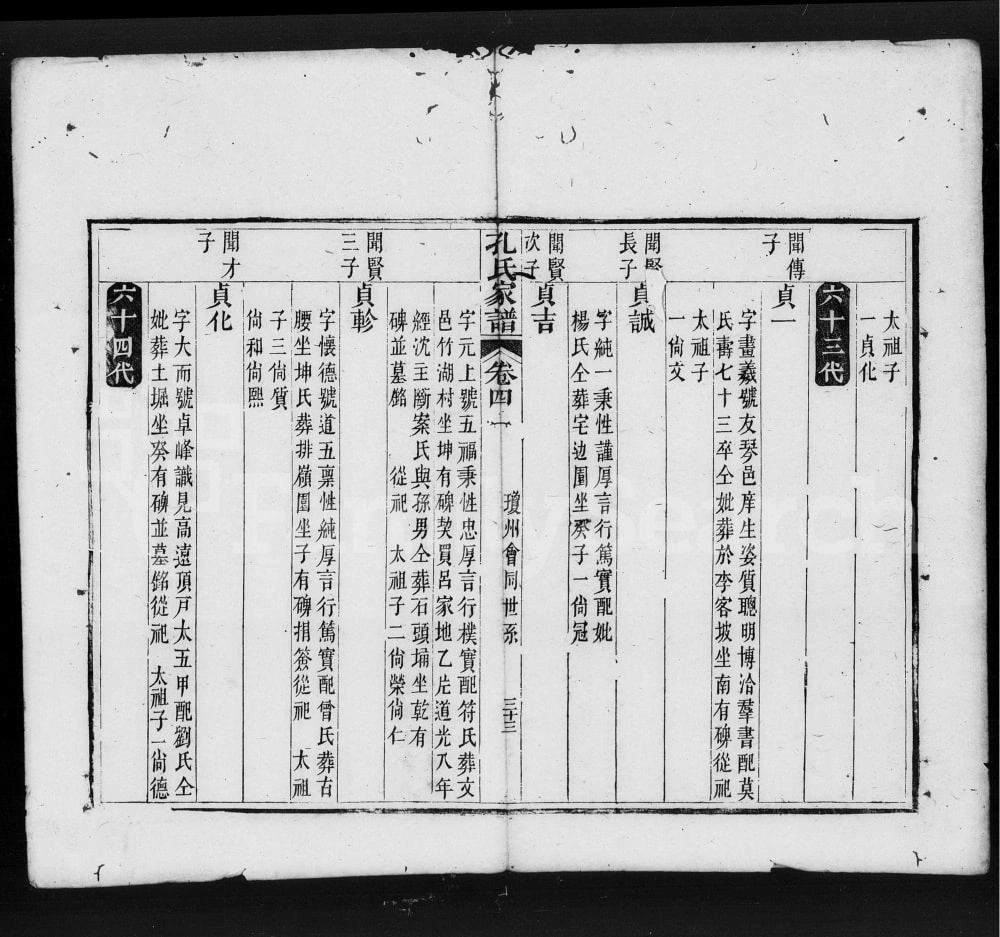 太祖子
一貞化
六十三代
聞傳
子
貞一
字畫羲號友琴邑庠生姿質聰明博洽羣書配莫
氏壽七十三卒仝妣葬於李客坡坐南有碑從祀
太祖子
一尙文
聞
長子
貞誠
字純一秉性謹厚言行篤實配妣
楊氏仝葬宅边園坐癸子一尙冠
聞賢
次子
貞吉
孔氏家譜
卷四
瓊州會同世系
三十三
字元上號五福秉性忠厚言行樸實配符氏葬文
邑竹湖村坐坤有碑契買呂家地乙片道光八年
經沈主斷案氏與孫男仝葬石頭埇坐乾有
碑並墓銘 從祀 太祖子二尙榮尙仁
聞賢
三子
貞軫
字懷德號道五禀性純厚言行篤實配曾氏葬古
腰坐坤氏葬排嶺園坐子有碑捐簽從祀 太祖
子三尙質
尙和尙熙
聞才
子
貞化
字大而號卓峰識見高遠頂戸太五甲配劉氏仝
妣葬土堀坐癸有碑並墓銘從祀 太祖子一尙德
六十四代